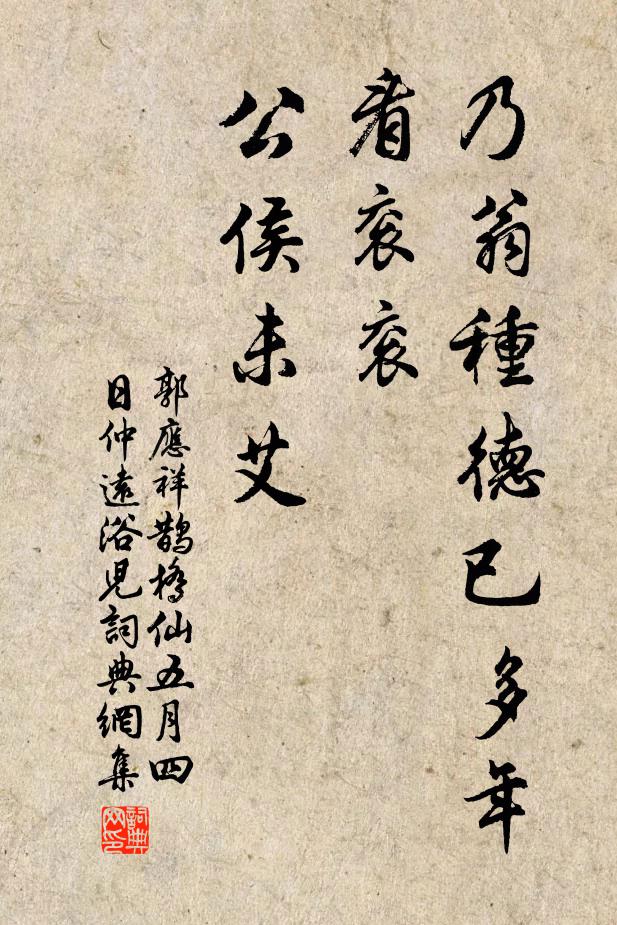 乃翁種德已多年
看衮衮
公侯未艾
郭應祥鵲橋仙五月四
日仲遠浴兒詞典網集
詞典
网印